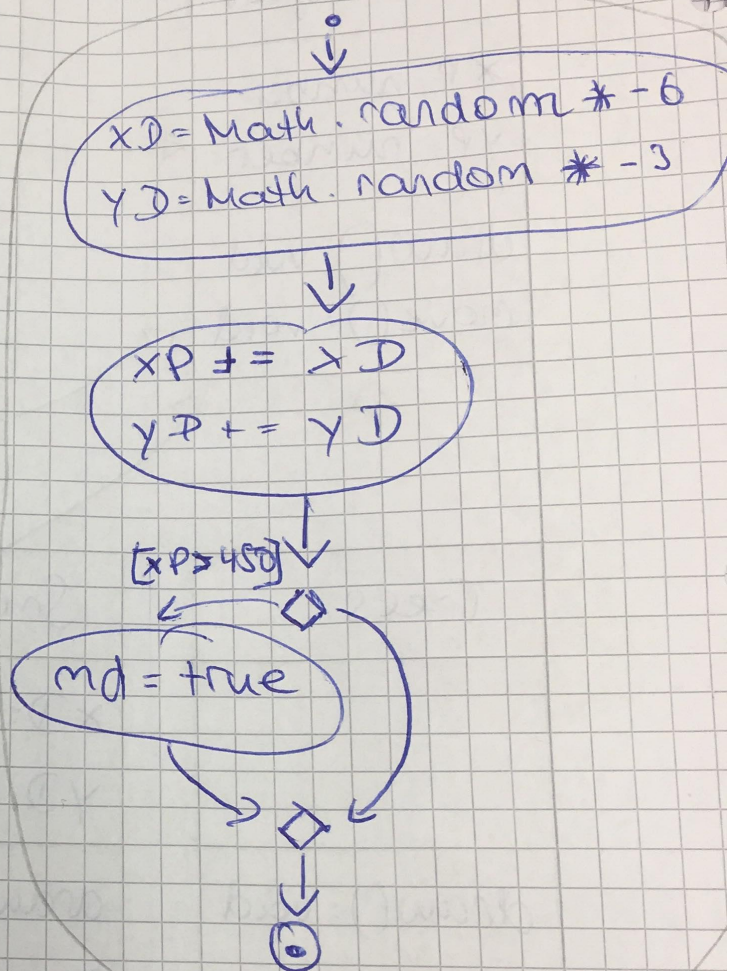 xD = Math.random * -6
yD = Math.random * -3
xP += xD
yP += yD
[xP>450]
md = true